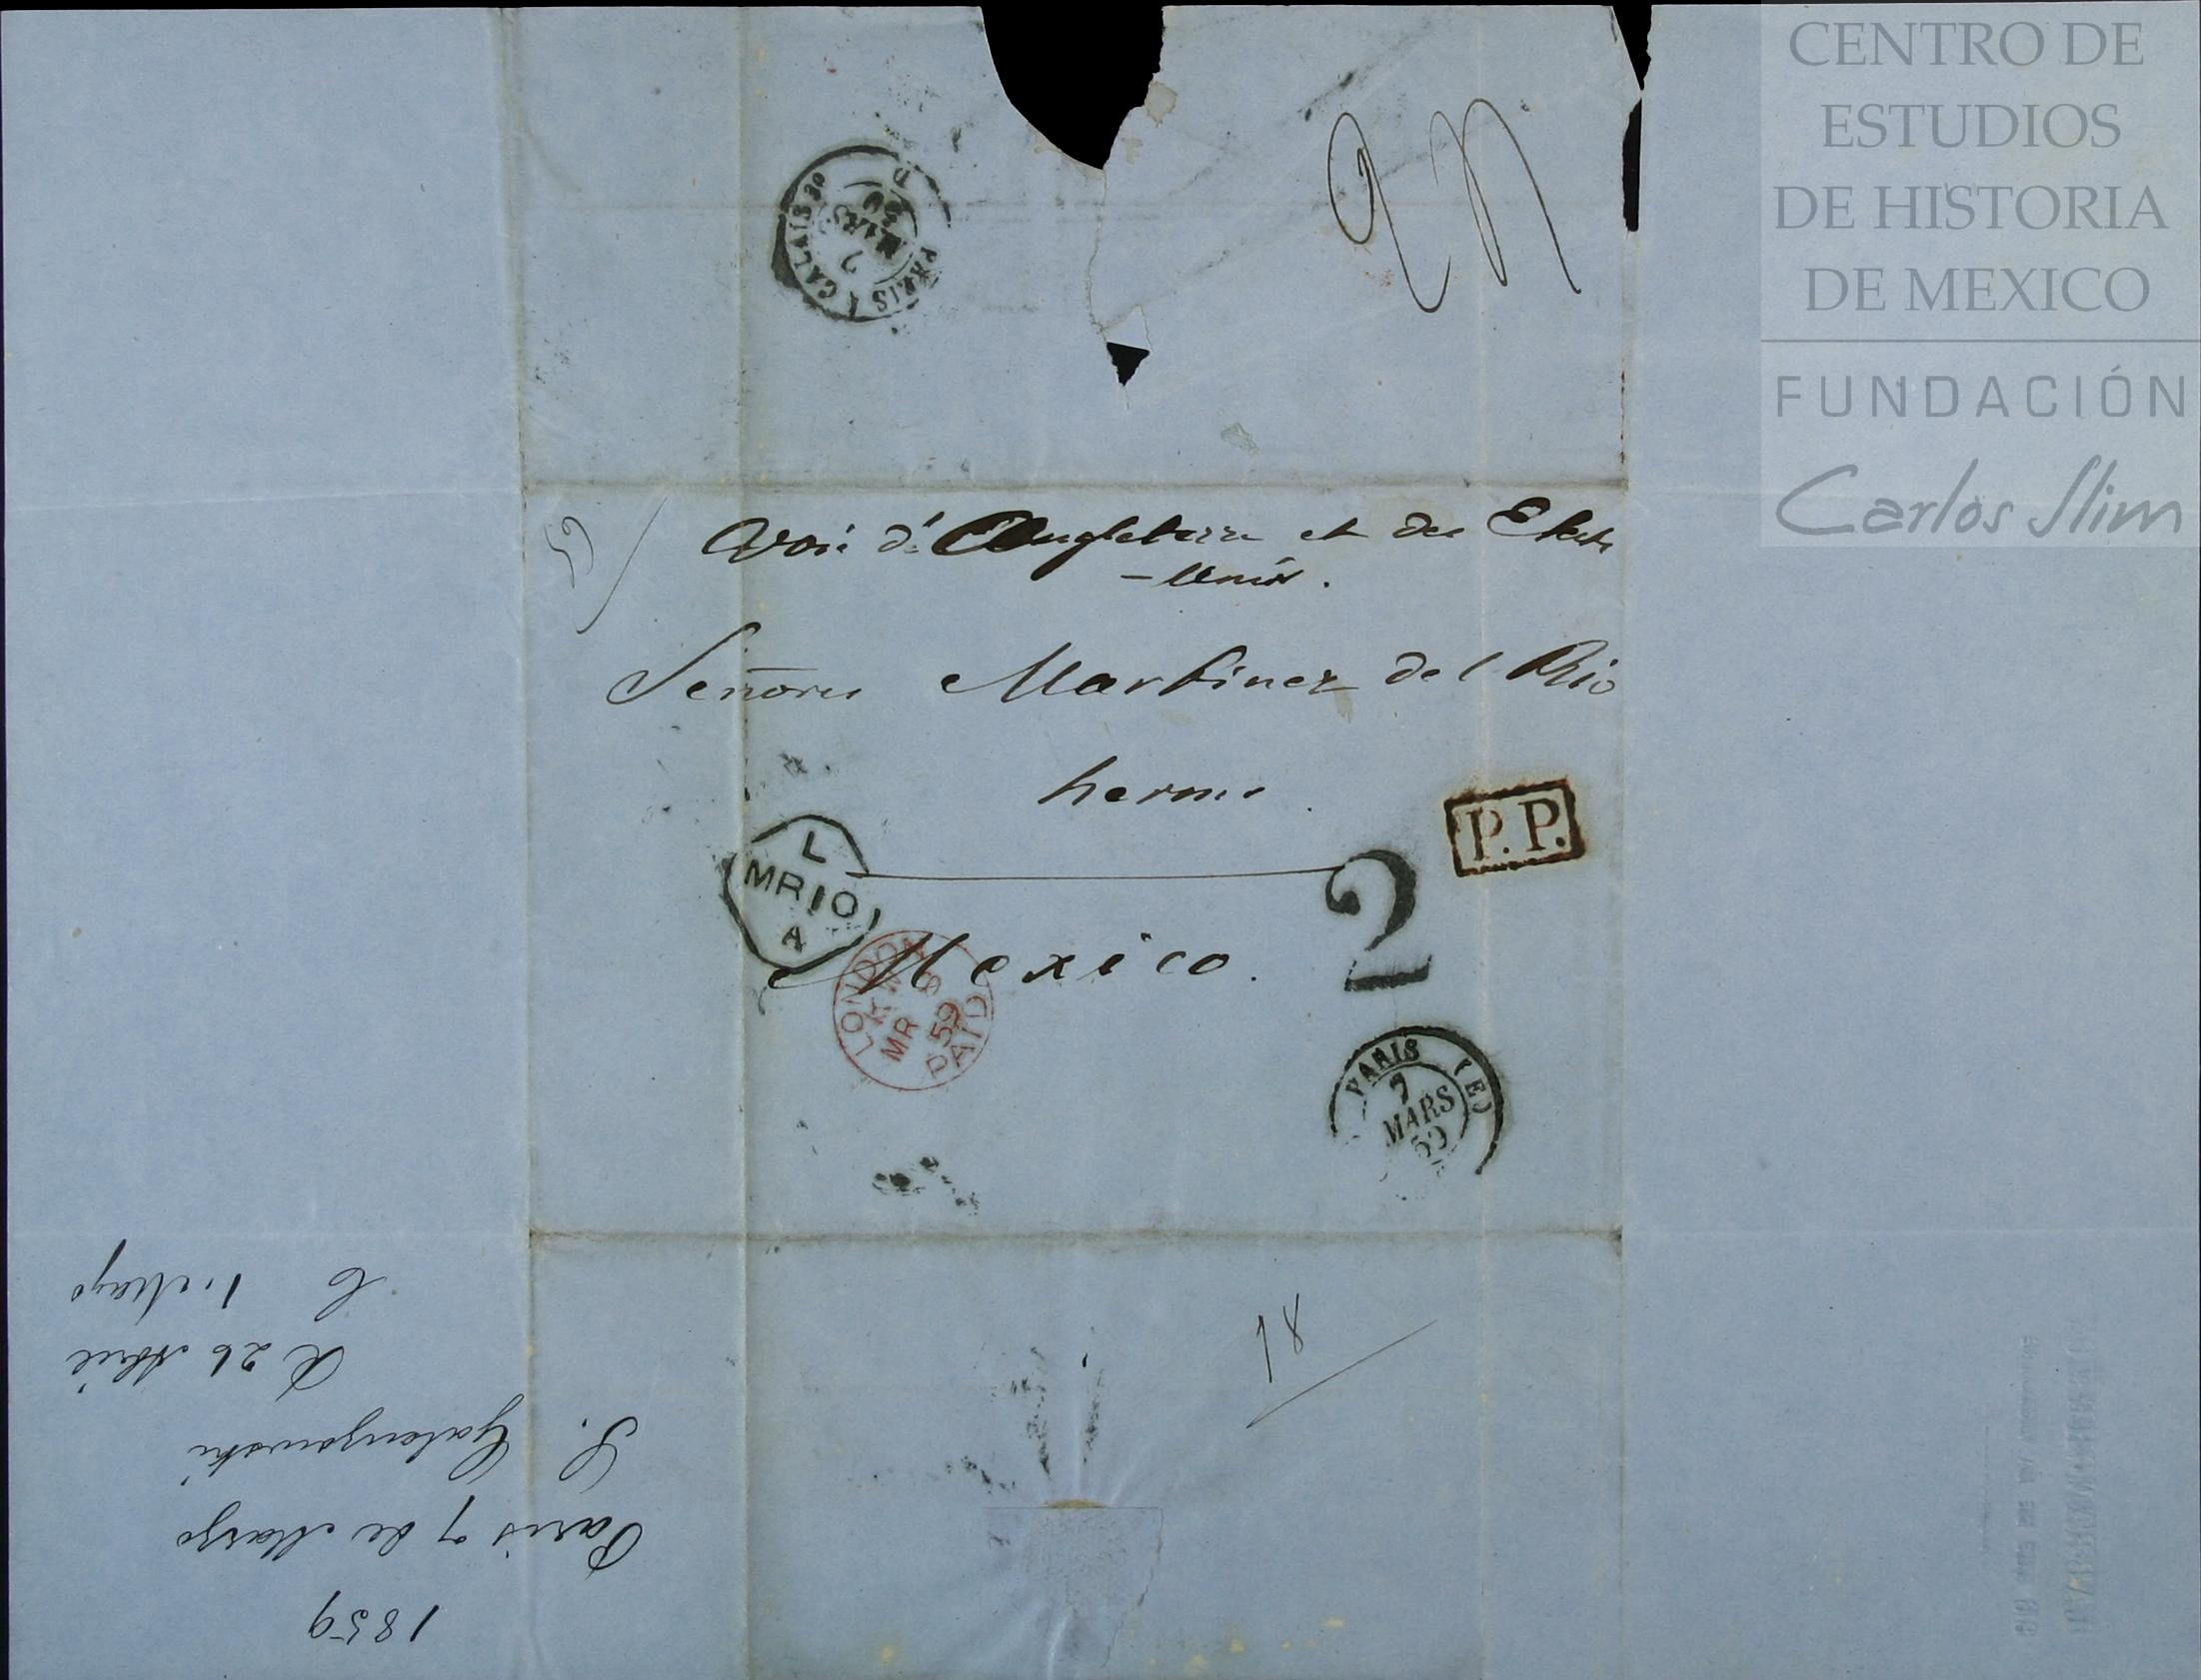 CENTRO DE
ESTUDIOS
DE HISTORIA
DE MEXICO
FUNDACIÓN
Carlos Slim
PARIS A CALAIS
7
MARS
59
D
Voie d'Angleterre et des Etats
-Unis.
Señores Martinez del Rio
herms
Mexico.
P.P.
2
L
MR10
A
LONDON
MR 9
59
PAID
PARIS (E)
7
MARS
59
18
1859
Paris 7 de Marzo
S. Galenzowski
R 26 Abril
C 1º Mayo